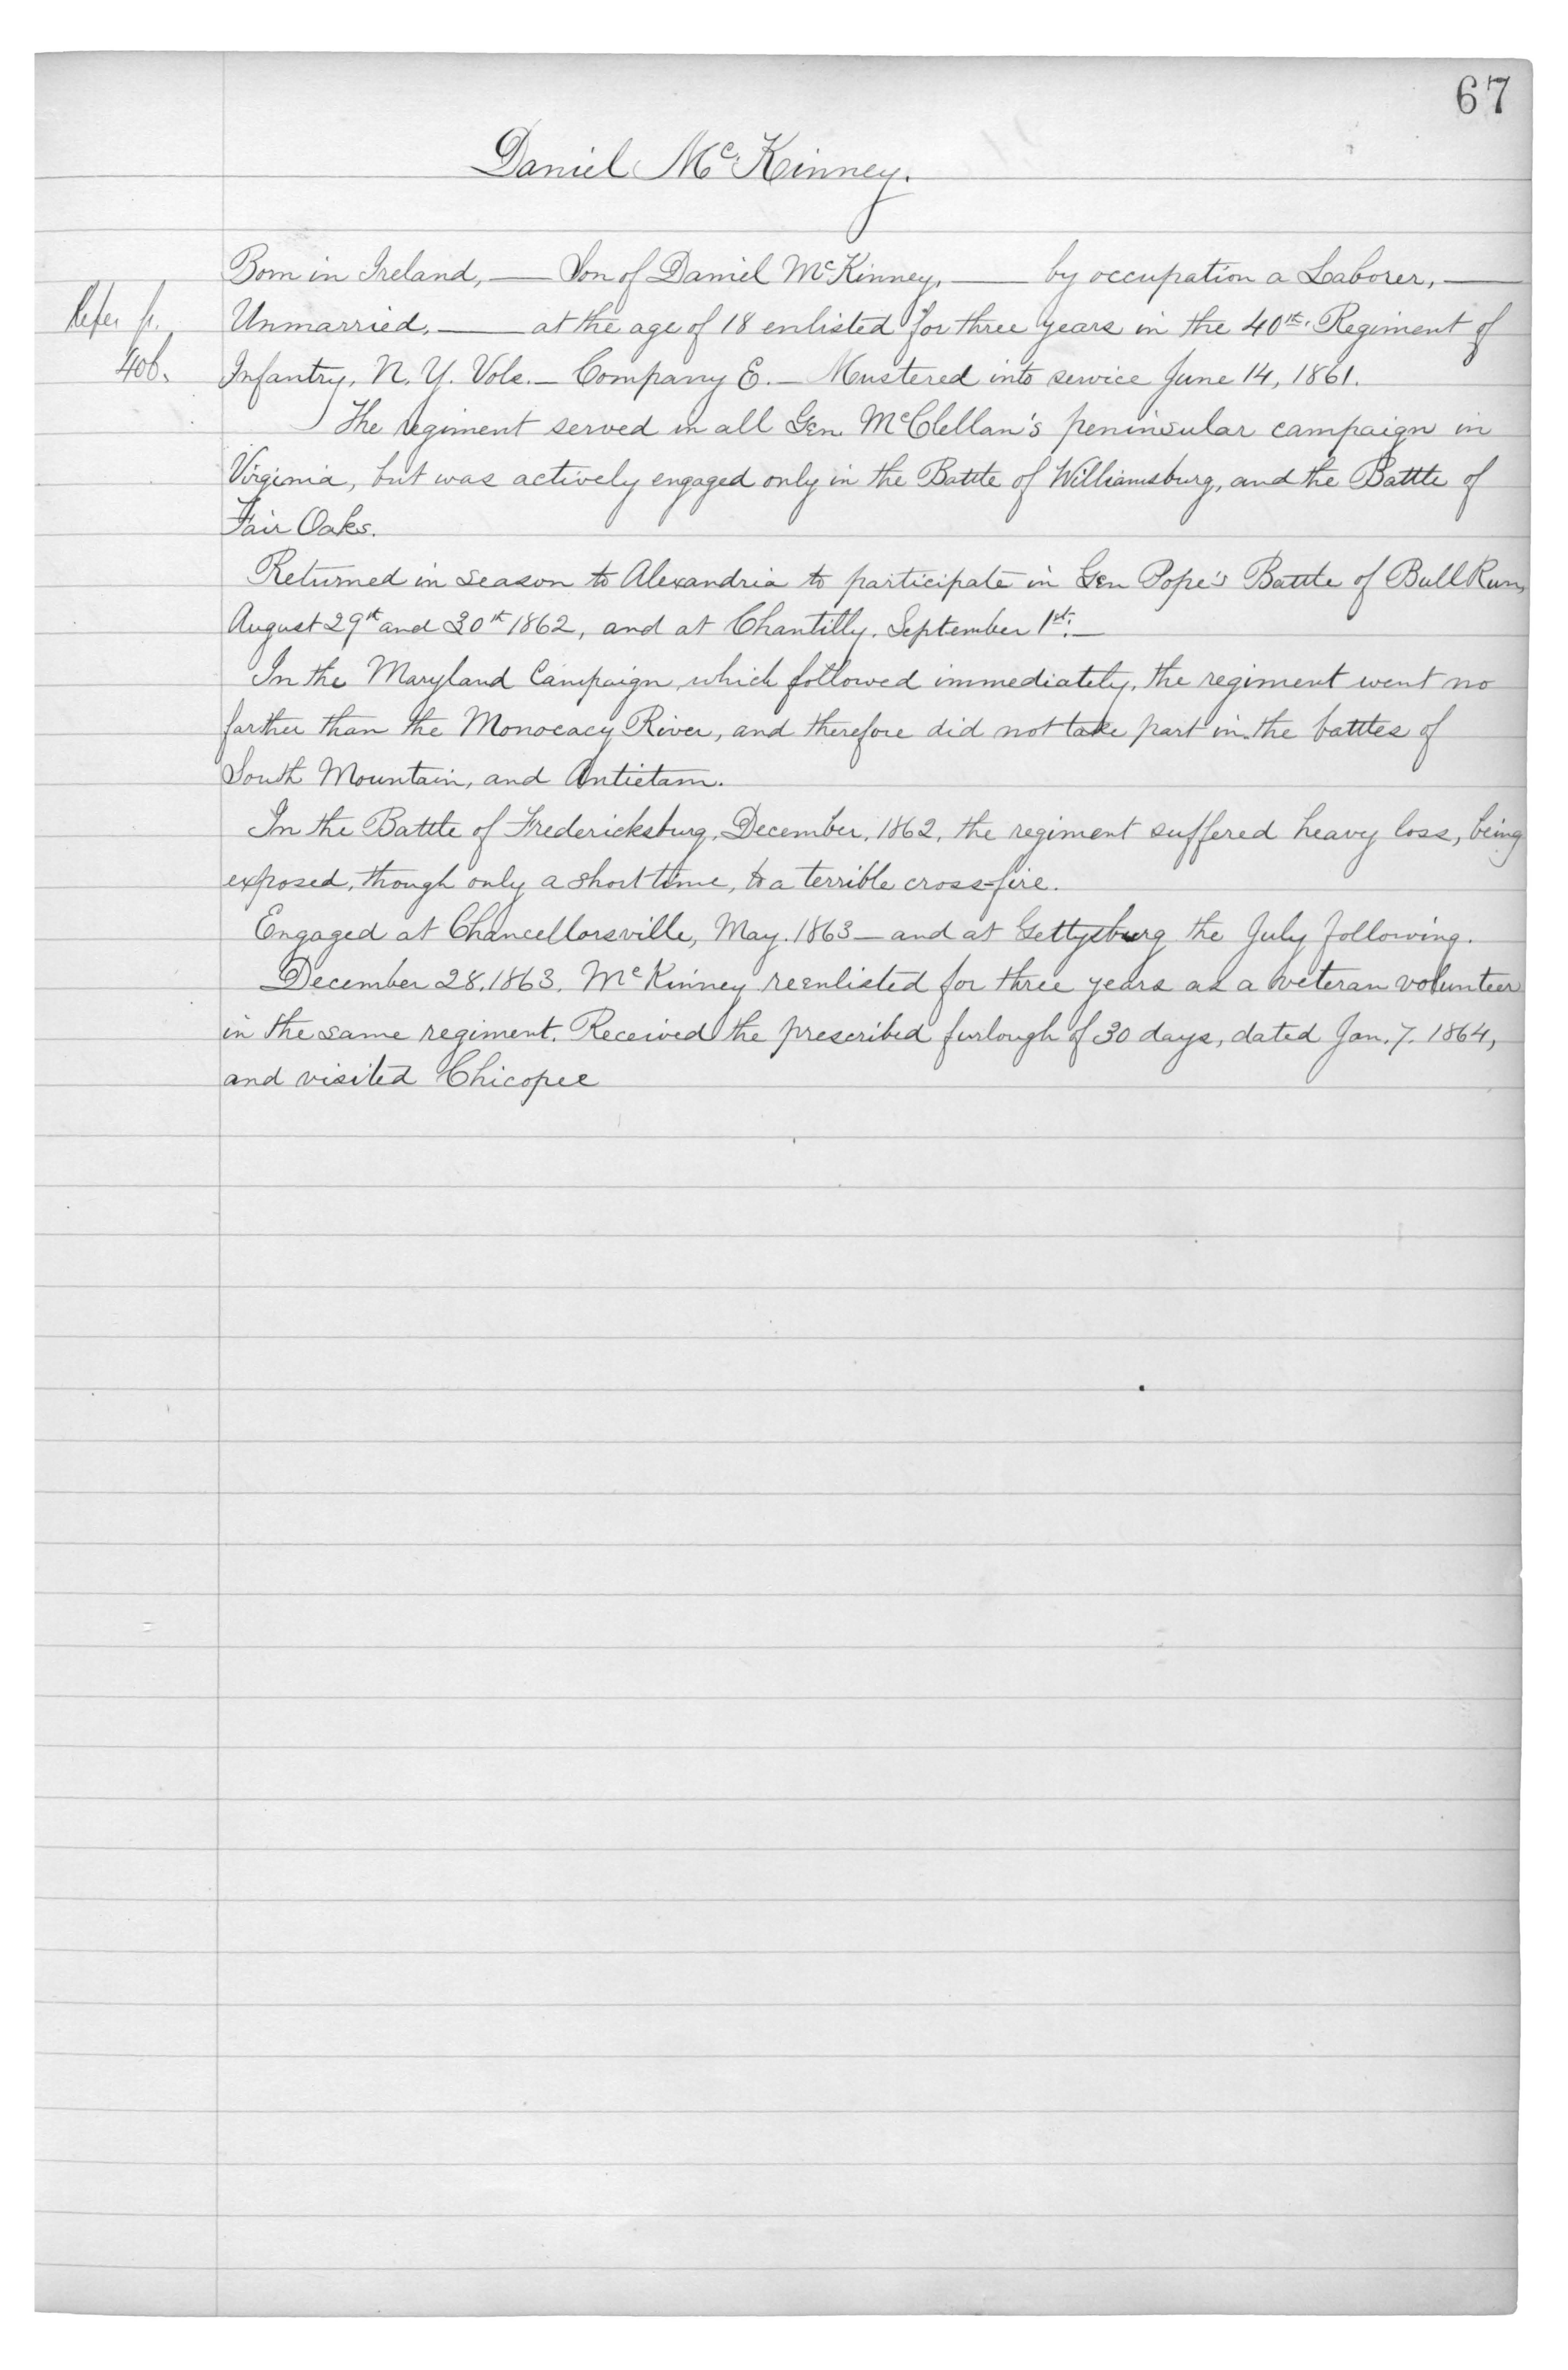 67
Daniel McKinney.
Born in Ireland, — Son of Daniel McKinney, — by occupation a Laborer, —
Refer p.
Unmarried, — at the age of 18 enlisted for three years in the 40th. Regiment of
406.
Infantry, N. Y. Vols. — Company E. — Mustered into service June 14, 1861.
The regiment served in all Gen. McClellan's peninsular campaign in
Virginia, but was actively engaged only in the Battle of Williamsburg, and the Battle of
Fair Oaks.
Returned in season to Alexandria to participate in Gen Pope's Battle of Bull Run,
August 29th and 30th 1862, and at Chantilly. September 1st. —
In the Maryland Campaign, which followed immediately, the regiment went no
farther than the Monocacy River, and therefore did not take part in the battles of
South Mountain, and Antietam.
In the Battle of Fredericksburg, December, 1862, the regiment suffered heavy loss, being
exposed, though only a short time, to a terrible cross-fire.
Engaged at Chancellorsville, May. 1863 — and at Gettysburg the July following.
December 28. 1863. McKinney reenlisted for three years as a veteran volunteer
in the same regiment. Received the prescribed furlough of 30 days, dated Jan. 7. 1864,
and visited Chicopee